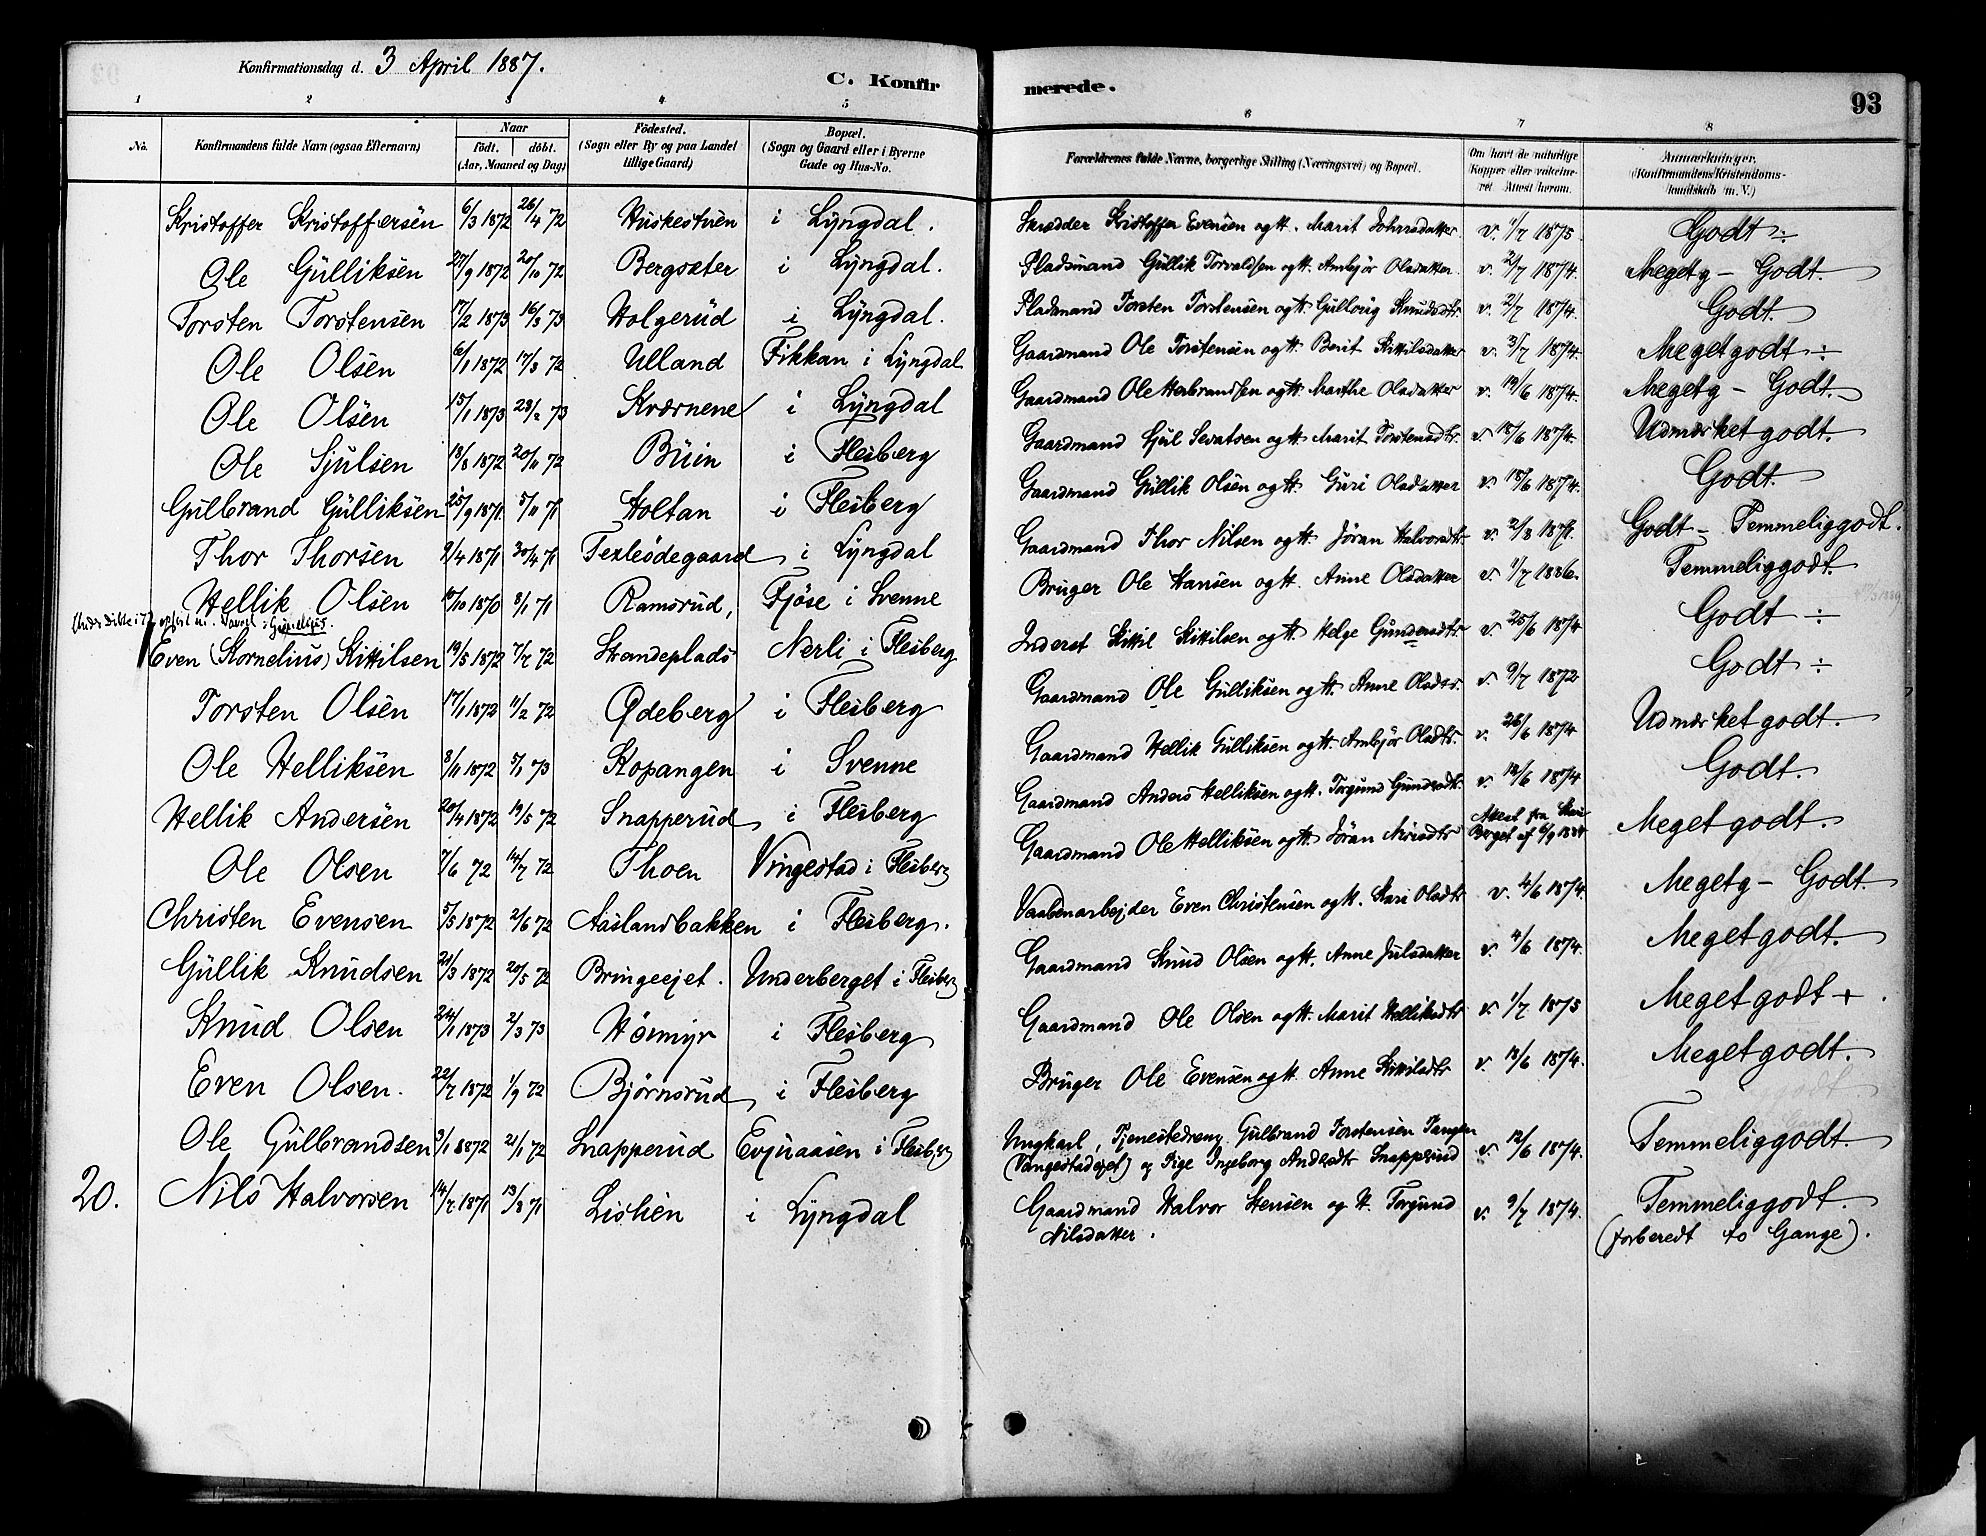 Konfirmationsdag d. 3 April 1887.
C. Konfirmerede.
93
1 2 3 4 5 6 7 8
No.
Konfirmandens fulde Navn (ogsaa Efternavn)
Naar
födt. döbt.
(Aar, Maaned og Dag)
Födested.
(Sogn eller By og paa Landet
tillige Gaard)
Bopæl.
(Sogn og Gaard eller i Byerne
Gade og Hus-No.
Forældrenes fulde Navne, borgerlige Stilling (Næringsvei) og Bopæl.
Om havt de naturlige
Kopper eller vaccineret
Attest herom.
Anmærkninger,
(Konfirmandens Kristendomskundskab
m. V.)
Kristoffer Kristoffersen 6/3 1872 26/4 72 Huskestuen i Lyngdal. Skrædder Kristoffer Evensen og H. Marit Johnsdatter v. 1/7 1875. Godt ÷
Ole Gulliksen 27/9 1872 20/10 72 Bergsæter i Lyngdal. Pladsmand Gullik Torvaldsen og H. Ambjör Olsdatter v. 2/7 1874. Megetg - Godt.
Torsten Torstensen 17/2 1873 16/3 73 Holgerud i Lyngdal. Pladsmand Torsten Torstensen og H. Gullovig Knudsdtr. v. 2/7 1874. Godt.
Ole Olsen 6/1 1872 17/3 72 Ulland Fikkan i Lyngdal Gaardmand Ole Torstensen og H. Berit Kittilsdatter v. 3/7 1874. Megetgodt ÷
Ole Olsen 15/1 1873 23/2 73 Kværnene i Lyngdal Gaardmand Ole Herbrandsen og H. Marthe Olsdatter v. 13/6 1874. Megetg - Godt.
Ole Sjulsen 18/8 1872 20/11 72 Büin i Flesberg Gaardmand Sjul Sevatsen og H. Marit Torstensdtr. v. 18/6 1874. Udmærketgodt.
Gulbrand Gulliksen 25/9 1871 5/11 71 Holtan i Flesberg Gaardmand Gullik Olsen og H. Guri Olsdatter v. 18/6 1874. Godt.
Thor Thorsen 2/4 1871 30/4 71 Texlesödegaard i Lyngdal Gaardmand Thor Nilsen og H. Jöran Halvorsdtr. v. 2/8 1871. Godt - Temmeliggodt.
Hellik Olsen 10/10 1870 8/1 71 Ramsrud, Fjöse i Svenne Bruger Ole Hansen og H. Anne Olsdatter v. 1/7 1886. Temmeliggodt.
Even (Kornelius) Kittilsen 19/5 1872 7/7 72 Strandeplads Nerli i Flesberg Inderst Kittil Kittilsen og H. Helge Gundersdtr. v. 25/6 1874 Godt ÷
Torsten Olsen 17/1 1872 11/2 72 Ødeberg i Flesberg Gaardmand Ole Gulliksen og H. Anne Olsdtr. v. 9/7 1872 Godt ÷
Ole Helliksen 8/11 1872 5/1 73 Kopangen i Svenne Gaardmand Hellik Gulliksen og H. Ambjör Olsdtr. v. 26/6 1874 Udmærketgodt.
Hellik Andersen 20/4 1872 19/5 72 Snapperud i Flesberg Gaardmand Anders Helliksen og H. Torgund Gundersdtr. v. 12/6 1874 Godt.
Ole Olsen 7/6 72 14/7 72 Thoen Vingestad i Flesberg Gaardmand Ole Helliksen og H. Jöran Nirisdtr Attest fra Berget af 6/9 Megetgodt.
Christen Evensen 5/5 1872 2/6 72 Aaslandbakken i Flesberg. Vaabenarbejder Even Christensen og H. Kari Olsdtr v. 4/6 1874. Megetg - Godt.
Gullik Knudsen 21/3 1872 20/5 72 Bringeejet. Underberget i Flesberg Gaardmand Knud Olsen og H. Anne Julsdatter v. 4/6 1874. Megetgodt.
Knud Olsen 24/1 1873 2/3 73 Hörmyr i Flesberg Gaardmand Ole Olsen og H. Marit Helliksdtr v. 1/7 1875 Megetgodt +
Even Olsen. 22/7 1872 1/9 72 Björnsrud i Flesberg Bruger Ole Evensen og H. Anne Kittilsdtr v. 13/6 1874. Megetgodt.
Ole Gulbrandsen 9/1 1872 21/1 72 Snapperud Evjuaasen i Flesberg Ungkarl, Tjenestedreng Gulbrand Torstensen Tangen
(Vangestadejet) og Pige Ingeborg Andersdtr Snapperud v. 12/6 1874. Temmeliggodt.
20. Nils Halvorsen 14/7 1871 13/8 71 Lislien i Lyngdal Gaardmand Halvor Stensen og H. Torgund
Nilsdatter. v. 9/7 1874. Temmeliggodt.
(forberedt to Gange).